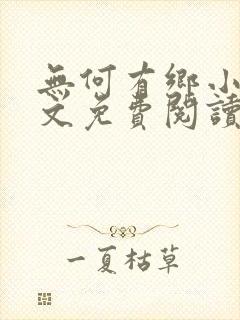 無何有鄉小
文免費閱讀
一夏枯草